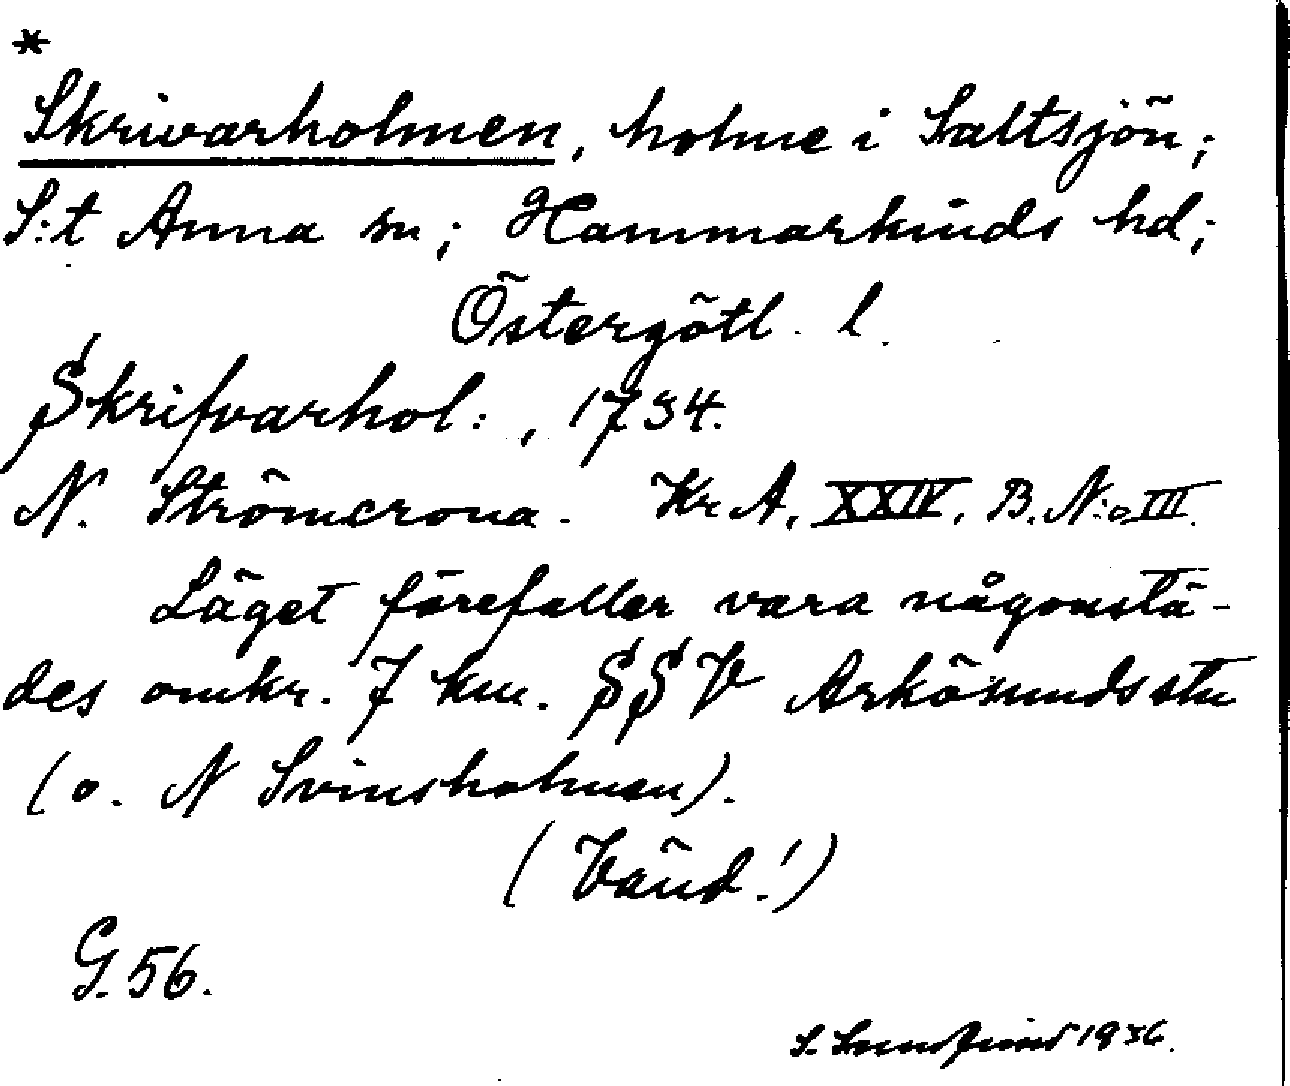 *
Skrivarholmen, holme i Saltsjön;
S:t Anna sn; Hammarkinds hd;
Östergötl. l.
Skrifvarhol:, 1734.
N. Strömcrona. Kr. A. XXIV. B. N:o III.
Läget förefaller vara någonstä-
des omkr. 7 km. SSV Arkösunds stn
(o. N Svinsholmen).
(Vänd!)
G. 56.
S. 1936.